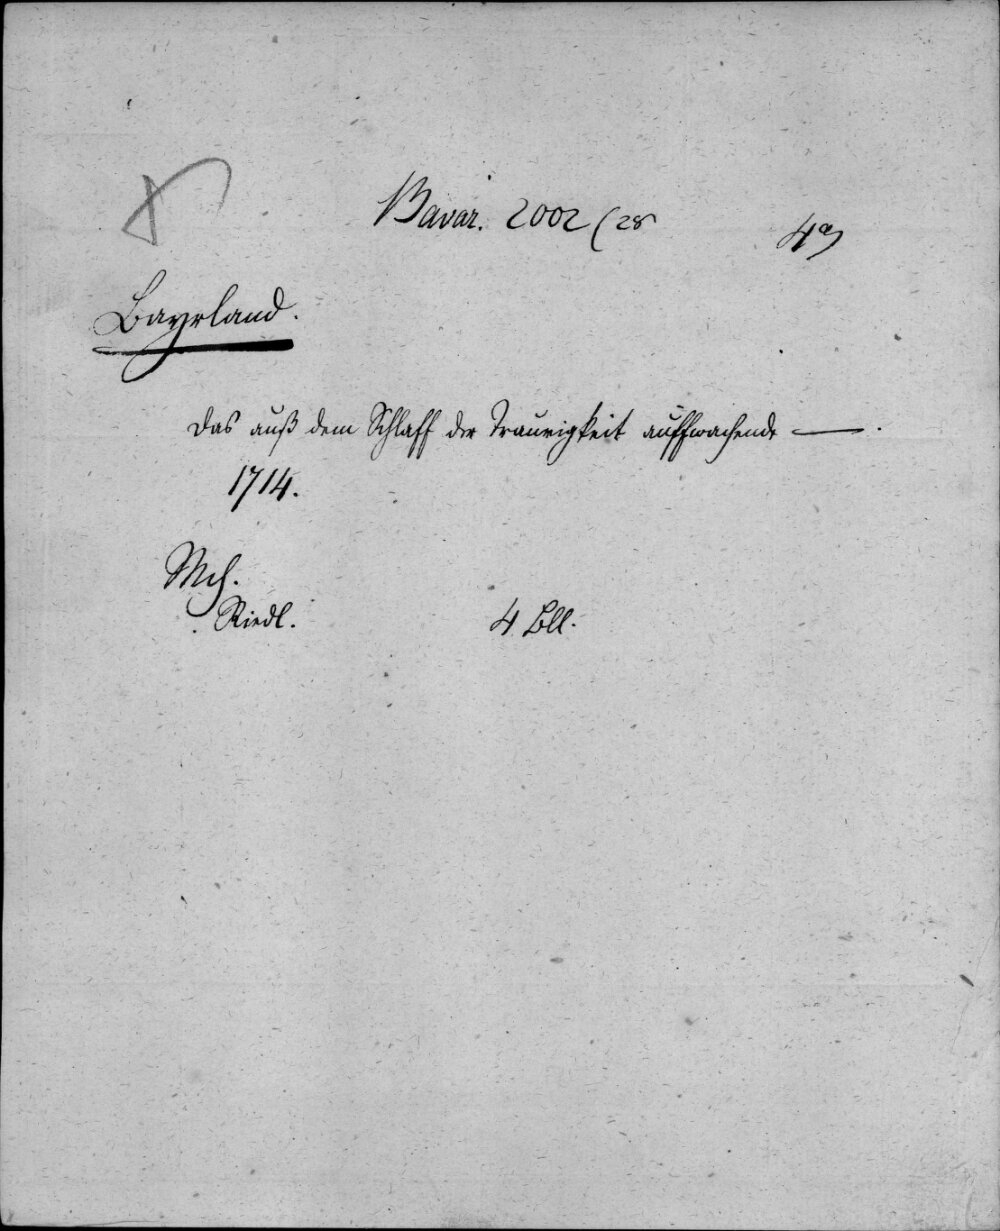 Bavar. 2002 (28
4°
Bayrland.
Das auß dem Schlaff der Traurigkeit auffwachende —.
1714.
Mch.
Riedl.
4 Bll.